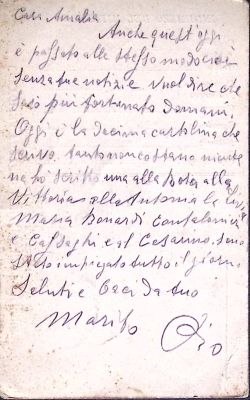 Cara Amalia
Anche quest'oggi
è passato allo stesso modo cioè
senza tue notizie vuol dire che
sarò più fortunato domani.
Oggi è la decima cartolina che
scrivo, tanto non costano niente
ne ho scritto una alla alla
Vittoria alla Antonia la
Maria Bonardi
e al Cesarino. sono
stato impiegato tutto il giorno
Saluti e Baci da tuo
Marito Pio